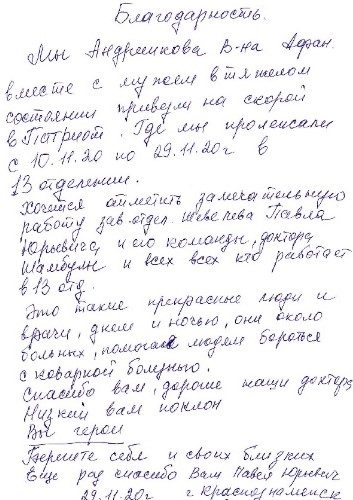 Благодарность.
Мы Андрюикова В-на Афан.
вместе с мужем в тяжелом
состоянии привезли на скорой
в Патриот. Где мы пролежали
с 10.11.20 по 29.11.20г в
13 отделении.
Хочется отметить замечательную
работу зав. отдел. Шевелева Павла
Юрьевича и его команды, доктора
Шамбулы и всех всех кто работает
в 13 отд.
Это такие прекрасные люди и
врачи, днем и ночью, они около
больных, помогая людям бороться
с коварной болезнью.
Спасибо вам, дорогие наши доктора
Низкий вам поклон
Вы герои
Берегите себя и своих близких
Еще раз спасибо Вам Павел Юрьевич
29.11.20г г Краснознаменск